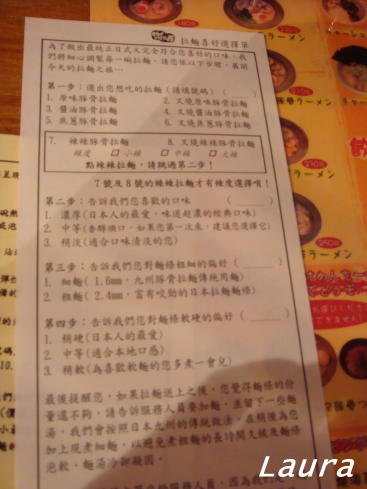 拉麵喜好選擇單
為了做出最純正日式又完全符合您喜好的口味，我
們將細心調製每一碗拉麵，請您依以下步驟，展開
今天的拉麵之旅…
第一步：選出您想吃的拉麵（請填號碼）（　　）
1. 原味豚骨拉麵　2. 叉燒原味豚骨拉麵
3. 醬油豚骨拉麵　4. 叉燒醬油豚骨拉麵
5. 焦蔥豚骨拉麵　6. 叉燒焦蔥豚骨拉麵
7. 辣辣豚骨拉麵　8. 叉燒辣辣豚骨拉麵
辣度　□ 小辣　□ 中辣　□ 大辣
點辣辣拉麵，請跳過第二步！
7號及8號的辣辣拉麵才有辣度選擇唷！
第二步：告訴我們您喜歡的口味　（　　）
1. 濃厚(日本人的最愛，味道超濃的經典口味)
2. 中等(香醇順口，如果您第一次來，建議您選擇它)
3. 稍淡(適合口味清淡的您)
第三步：告訴我們您對麵條粗細的偏好（　　）
1. 細麵( 1.6mm，九州豚骨拉麵傳統用麵)
2. 粗麵( 2.4mm，富有咬勁的日本拉麵麵條)
第四步：告訴我們您對麵條軟硬的偏好（　　）
1. 稍硬(日本人的最愛)
2. 中等(適合本地口感)
3. 稍軟(為喜歡軟麵的您多煮一會兒)
最後提醒您，如果拉麵送上之後，您覺得麵條的份
量還不夠，請告訴服務人員要加麵，並留下一些麵
湯，我們會按照日本九州的傳統做法，在稍後為您
加上現煮細麵，以避免煮粗麵的長時間久候及麵條
泡軟、麵湯冷卻凝固。
ラーメン
ラーメン
ラーメン
ラーメン
Laura